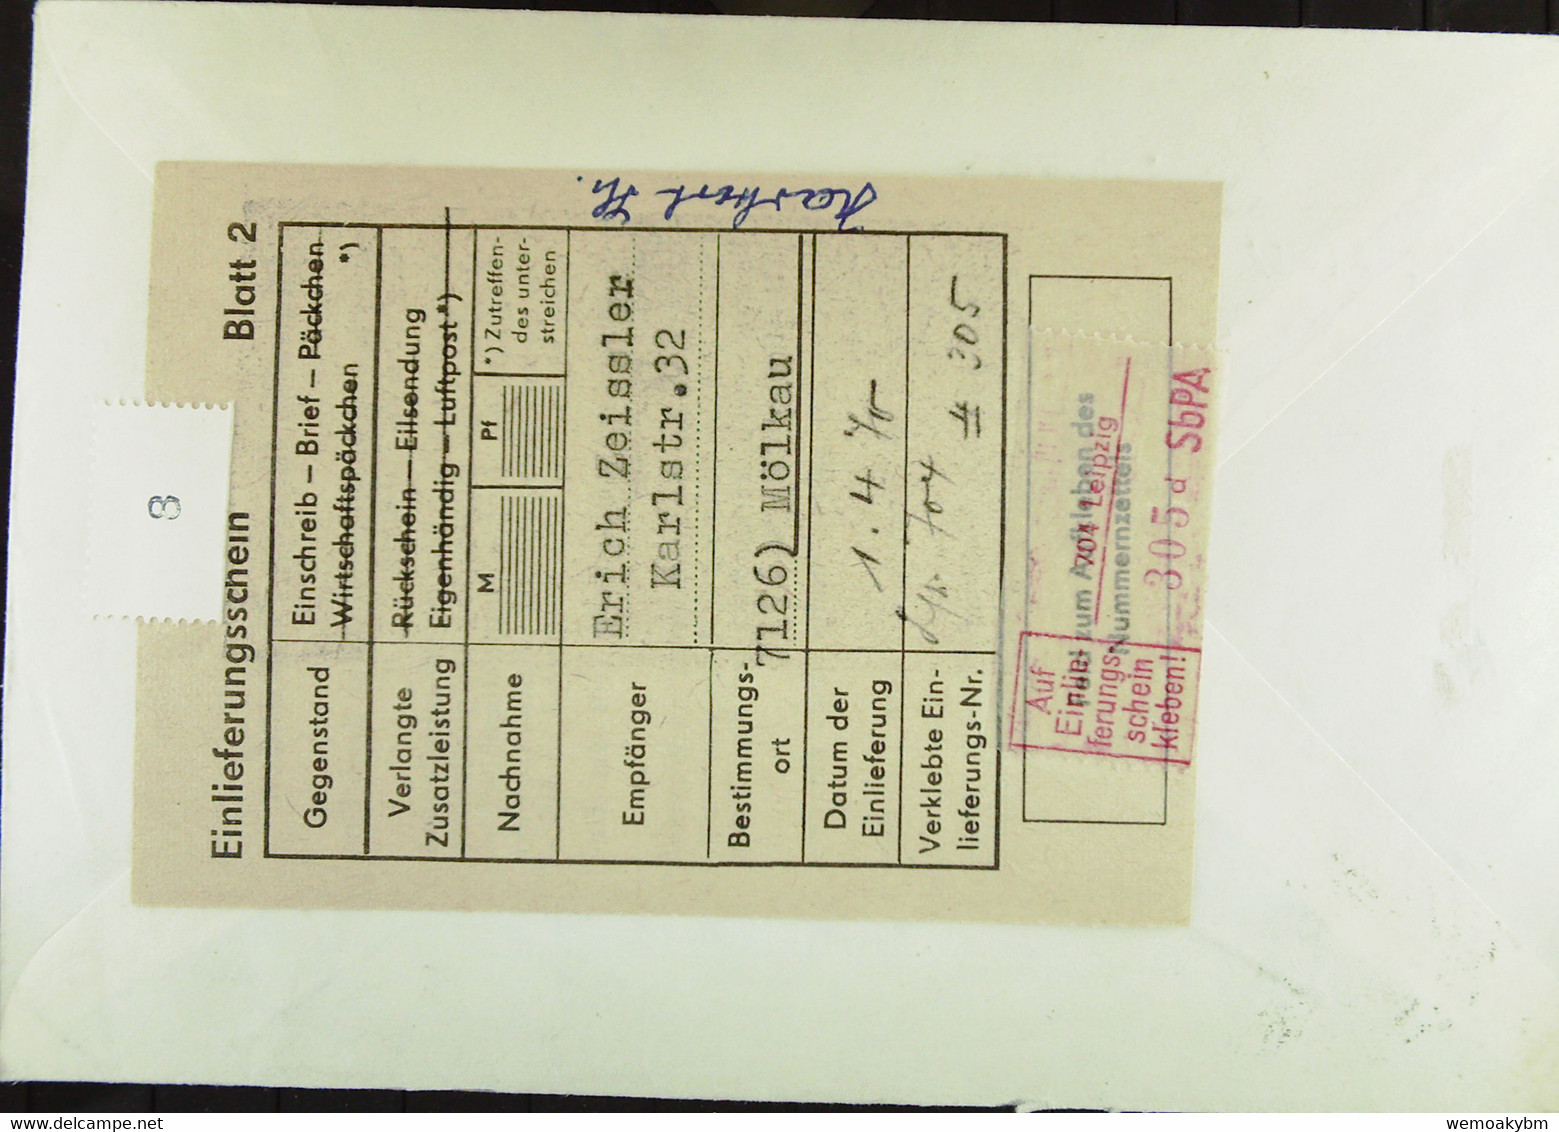 Einlieferungsschein Blatt 2
Gegenstand
Einschreib – Brief – Päckchen
Wirtschaftspäckchen *)
Verlangte
Zusatzleistung
Rückschein – Eilsendung
Eigenhändig – Luftpost *)
Nachnahme
M Pf
*) Zutreffen-
des unter-
streichen
Empfänger
Erich Zeissler
Karlstr.32
Bestimmungs-
ort
7126) Mölkau
Datum der
Einlieferung
1. 4. 70
Verklebte Ein-
lieferungs-Nr.
Lpz. 704 # 305
zum Aufkleben des
Nummernzettels
Auf
Einlie-
ferungs-
schein
kleben!
704 Leipzig
305 d SbPA
8
delcampe.net
wemoakybm